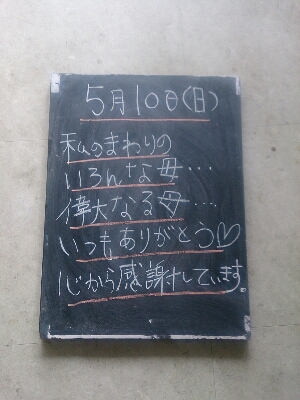 5月10日(日)
私のまわりの
いろんな母…
偉大なる母…
いつもありがとう♡
心から感謝しています。